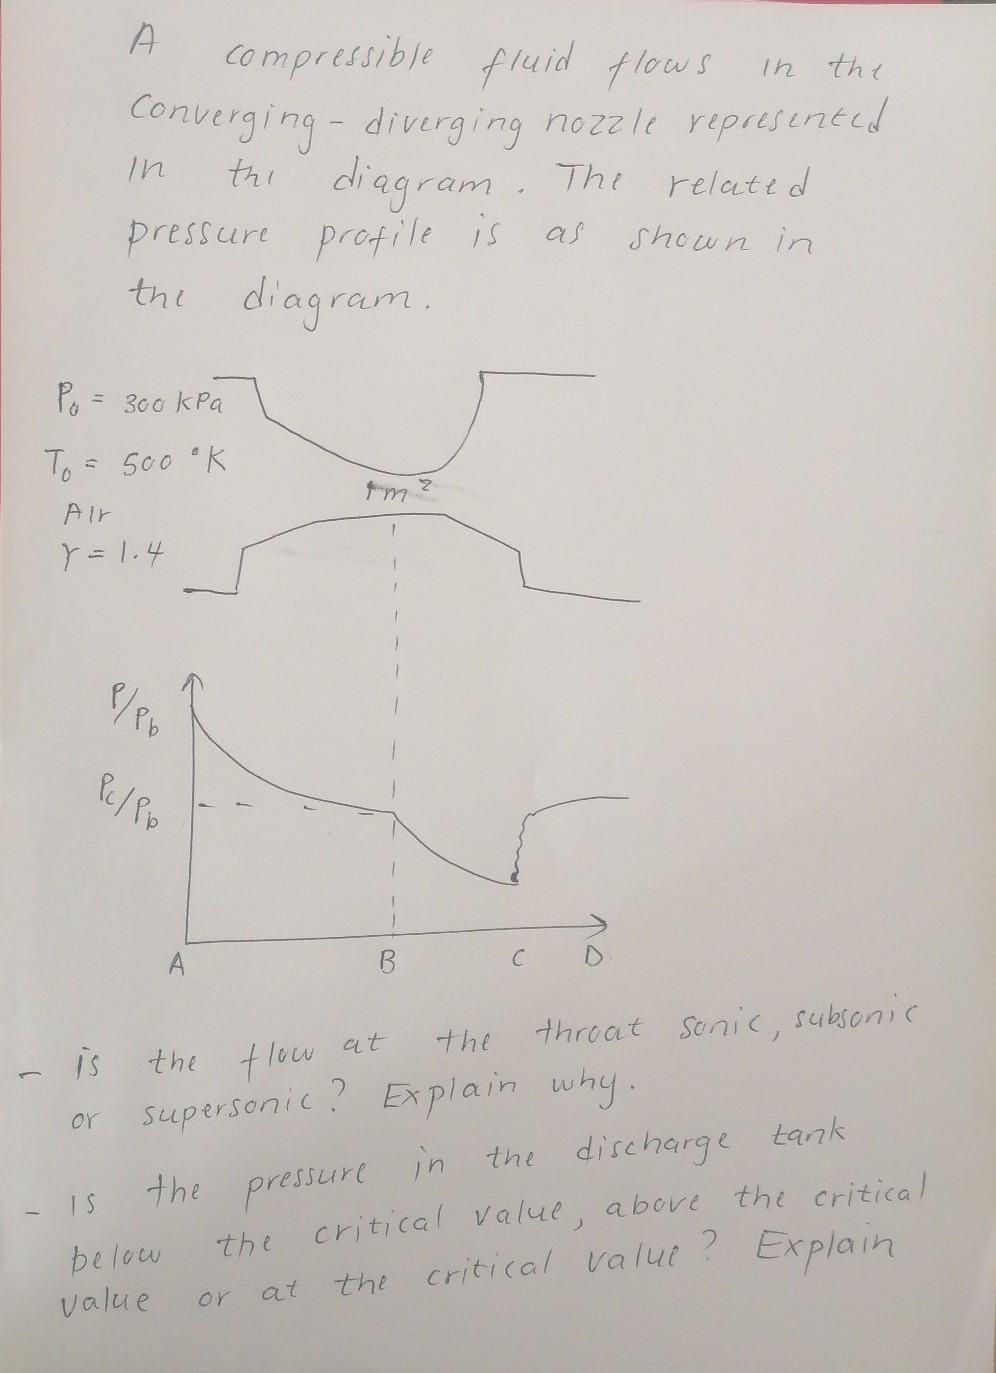 A compressible fluid flows in the
Converging - diverging nozzle represented
In the diagram. The related
pressure profile is as shown in
the diagram.
P₀ = 300 kPa
T₀ = 500 °K
Air
γ = 1.4
1 m²
P/Pb
Pc/Pb
A B C D
- is the flow at the throat sonic, subsonic
or supersonic? Explain why.
- Is the pressure in the discharge tank
below the critical value, above the critical
value or at the critical value? Explain